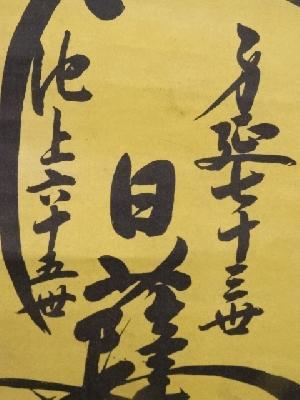 身延七十三世
日薩
池上六十五世